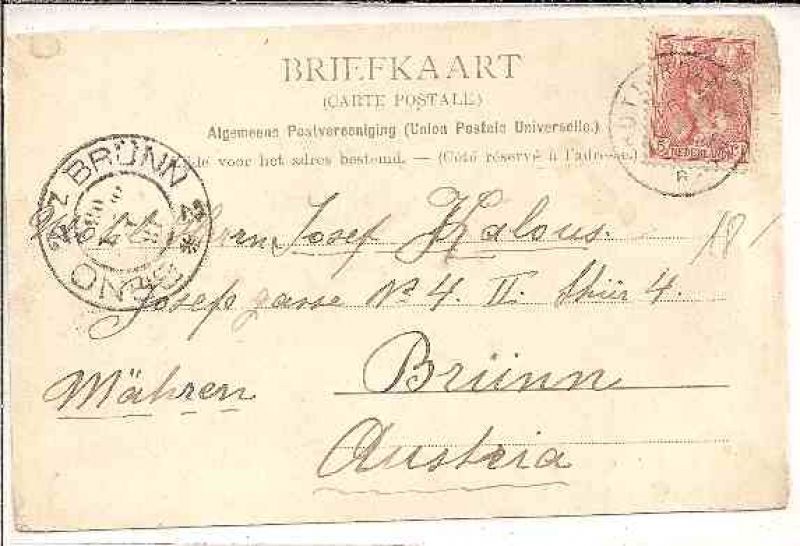 BRIEFKAART
(CARTE POSTALE.)
Algemeene Postvereeniging (Union Postale Universelle.)
de voor het adres bestemd. — (Côté réservé à l'adresse.)
5 NEDERLAND
BRÜNN
BRNO
Herrn Josef Kalous.
18
Josef gasse No 4. II. Thür 4.
Brünn
Mähren
Austria